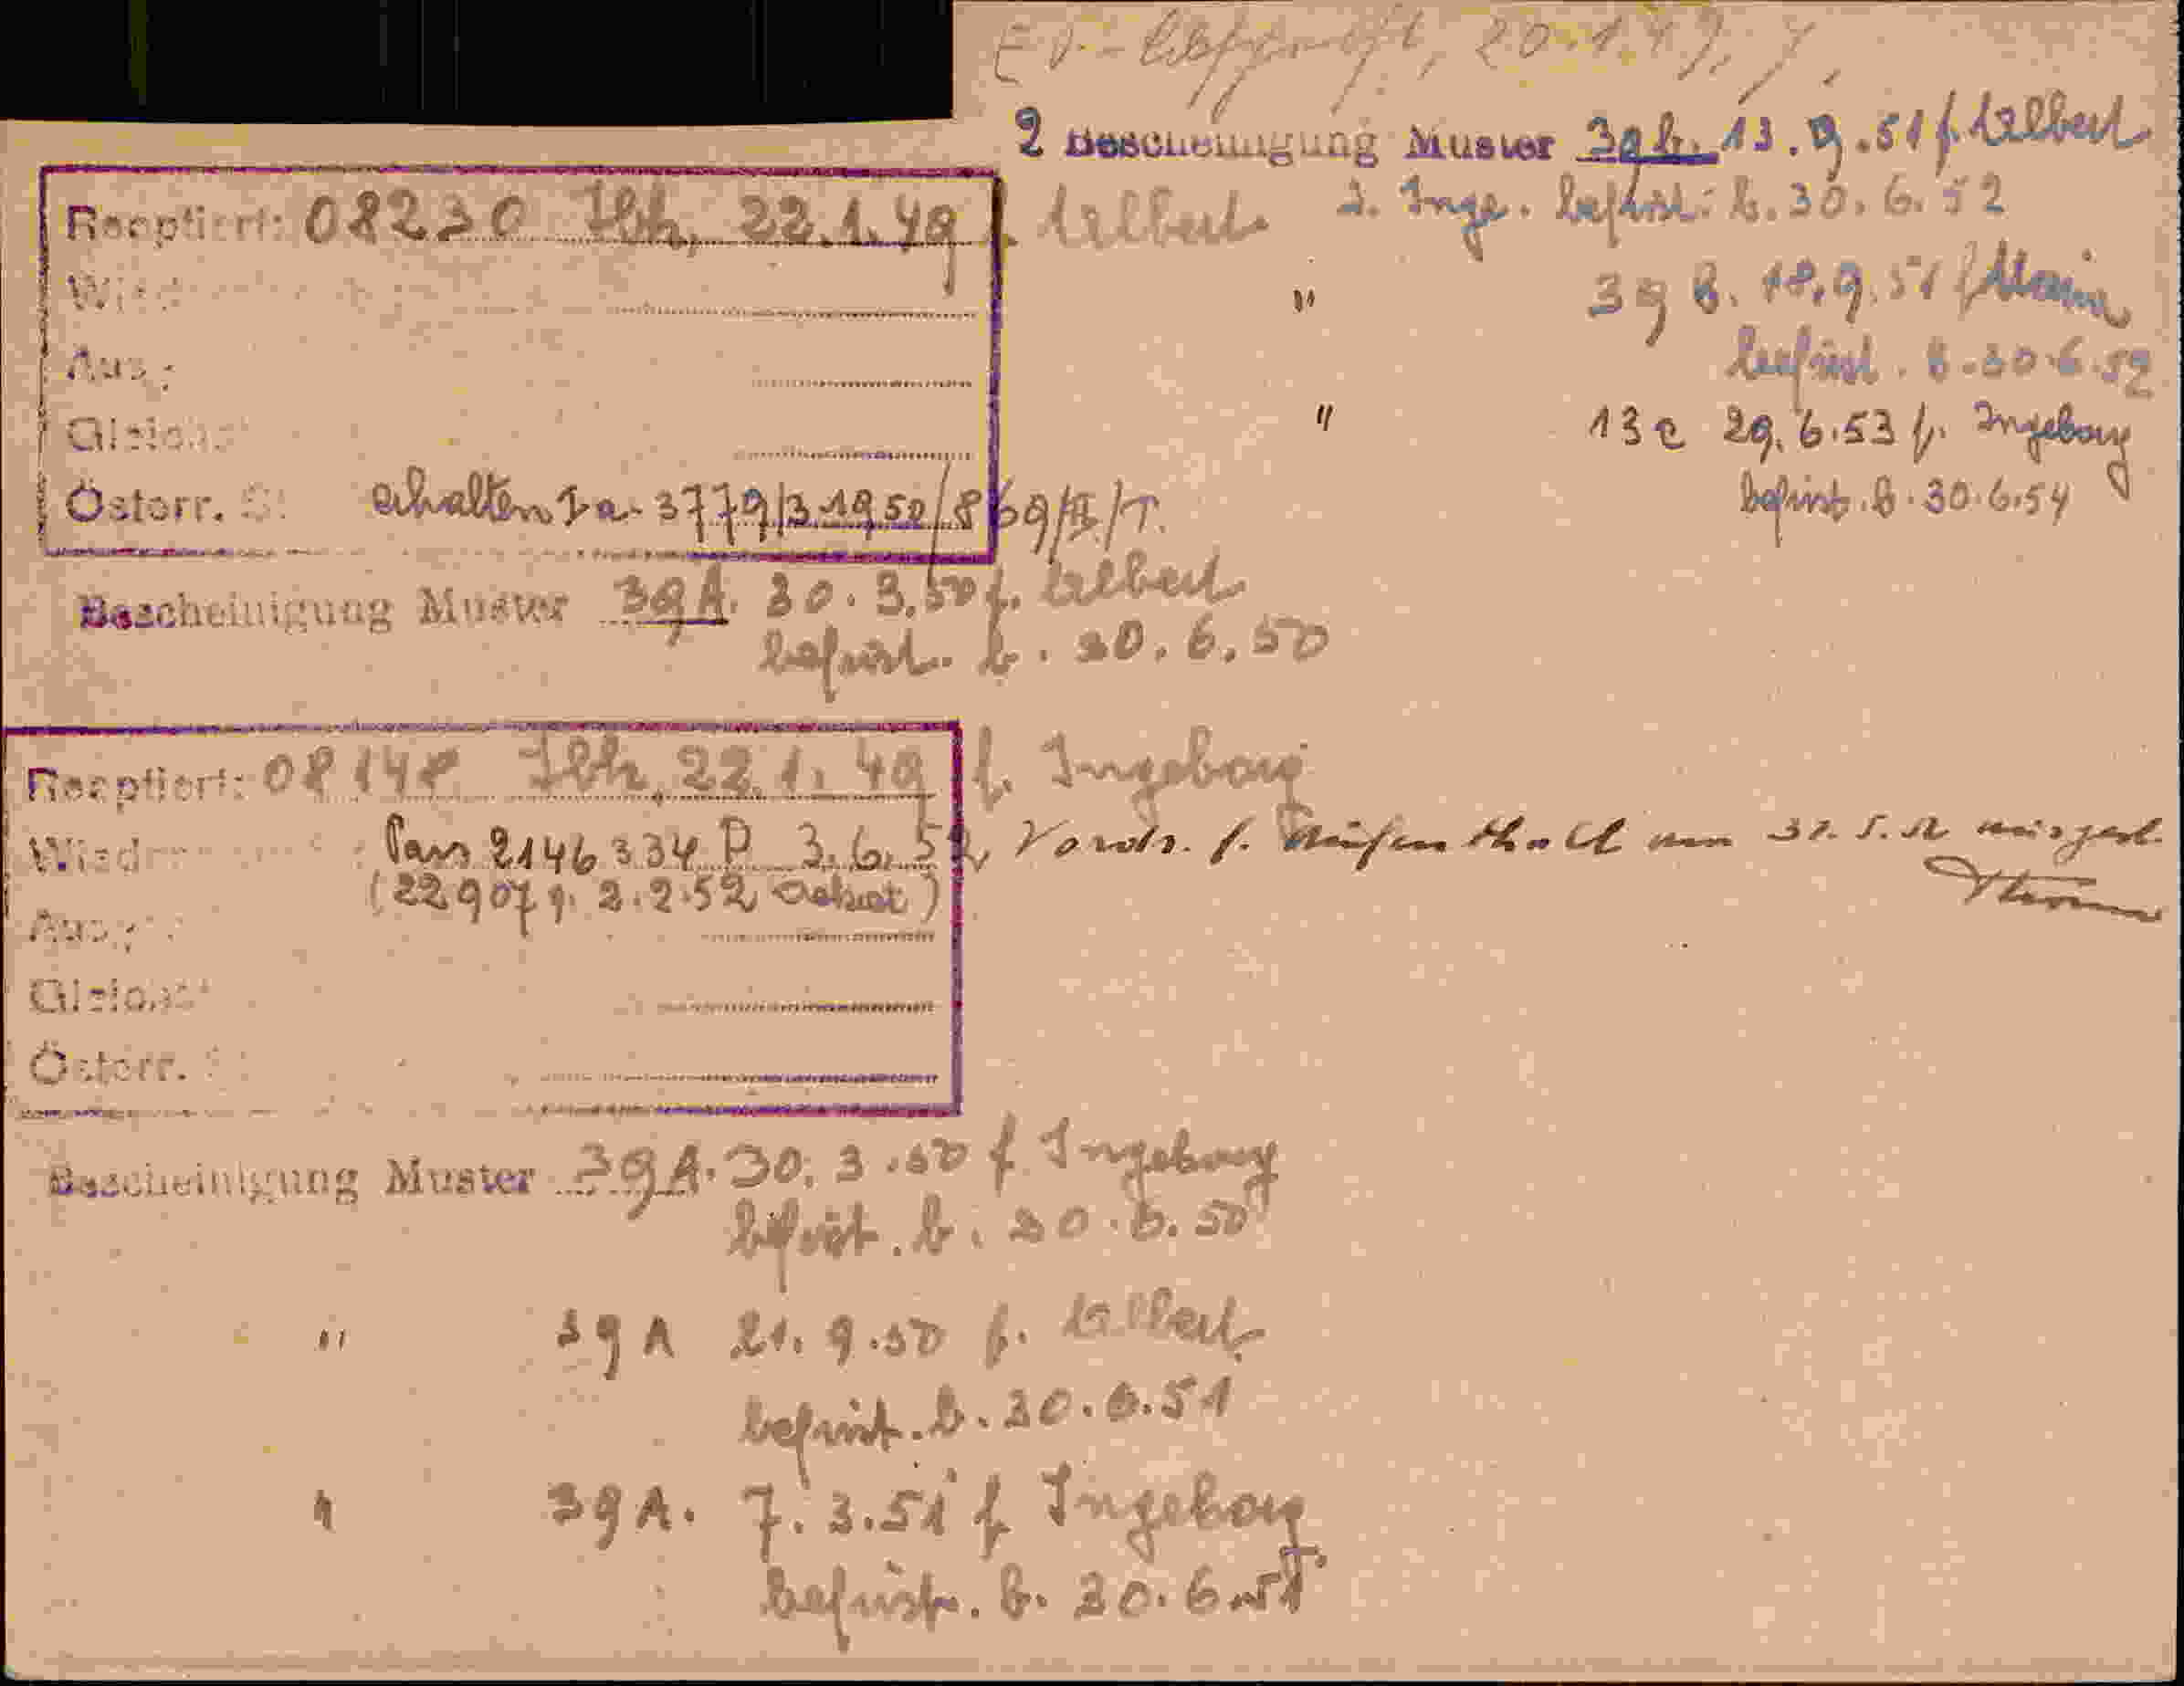 20.1.49.
2 Bescheinigung Muster 39 b. 13.9.51 f. Albert
Reeptiert: 08230 Ibk, 22.1.49 f. Albert
3. Inge. befrist. b. 30.6.52
Wied
" 39 b. 18.9.51 f.
befrist. b. 30.6.52
Aus
Gleich
" 13e 29.6.53 f. Ingeborg
befrist. b. 30.6.54
Österr. S erhalten Ia-3779/3-1950/869/II/T.
Bescheinigung Muster 39 A. 30.3.50 f. Albert
befrist. b. 30.6.50
Reeptiert: 08148 Ibk, 22.1.49 f. Ingeborg
Wied Pass 2146 334 P 3.6.52, Vordr. f. am 31.5.52
(22907 2.2.52)
Aus
Gleich
Österr.
Bescheinigung Muster 39 A. 30.3.50 f Ingeborg
befrist. b. 30.6.50
" 39 A 21.9.50 f. Albert
befrist. b. 30.6.51
" 39 A. 7.3.51 f Ingeborg
befrist. b. 30.6.51